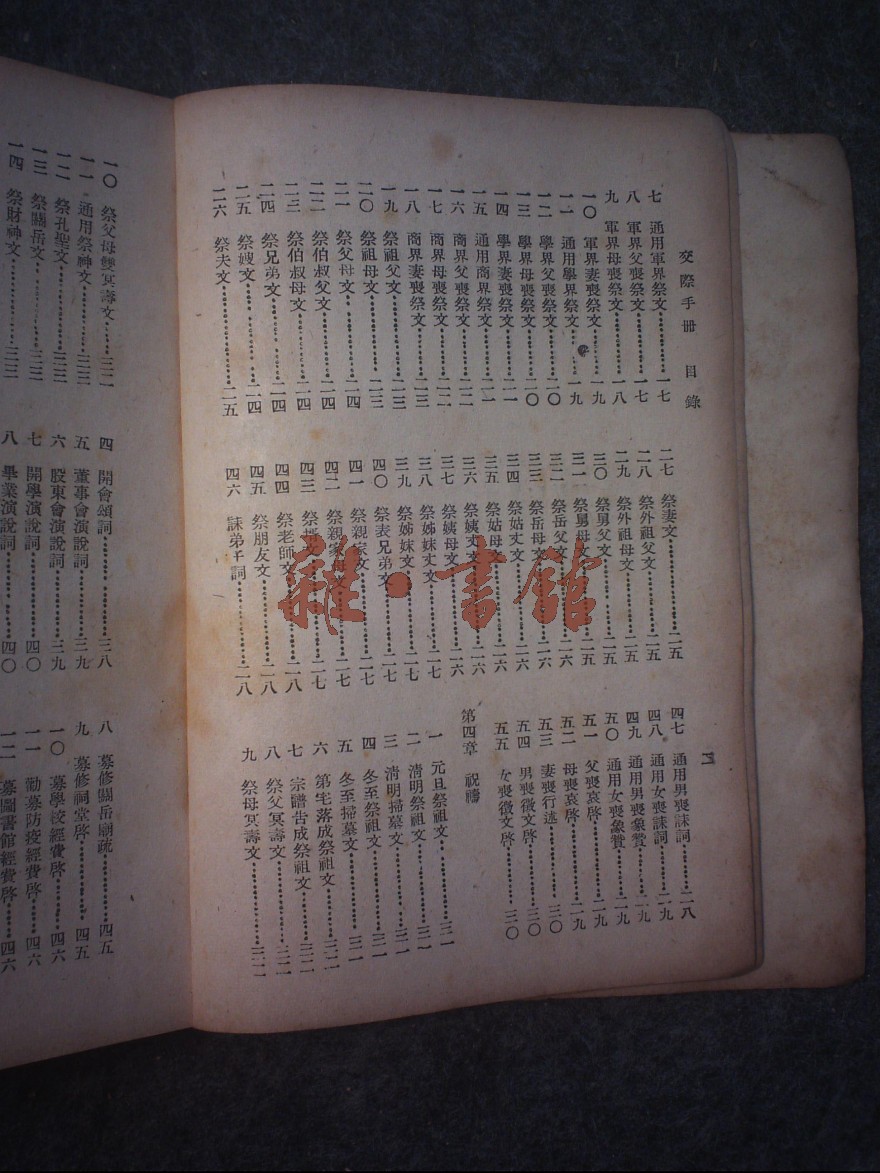 交際手冊 目錄
四
七 通用軍界祭文 一七
八 軍界父喪祭文 一七
九 軍界母喪祭文 一八
一〇 軍界妻喪祭文 一九
一一 通用學界祭文 一九
一二 學界父喪祭文 二〇
一三 學界母喪祭文 二〇
一四 學界妻喪祭文 二一
一五 通用商界祭文 二一
一六 商界父喪祭文 二二
一七 商界母喪祭文 二二
一八 商界妻喪祭文 二三
一九 祭祖父文 二三
二〇 祭祖母文 二三
二一 祭父母文 二四
二二 祭伯叔父文 二四
二三 祭伯叔母文 二四
二四 祭兄弟文 二四
二五 祭嫂文 二四
二六 祭夫文 二五
二七 祭妻文 二五
二八 祭外祖父文 二五
二九 祭外祖母文 二五
三〇 祭舅父文 二五
三一 祭舅母文 二五
三二 祭岳父文 二六
三三 祭岳母文 二六
三四 祭姑丈文 二六
三五 祭姑母文 二六
三六 祭姨丈文 二六
三七 祭姨母文 二六
三八 祭姊妹丈文 二七
三九 祭姊妹文 二七
四〇 祭表兄弟文 二七
四一 祭親家文 二七
四二 祭親家母文 二七
四三 祭 二七
四四 祭老師文 二八
四五 祭朋友文 二八
四六 誄弟子詞 二八
四七 通用男喪誄詞 二八
四八 通用女喪誄詞 二九
四九 通用男喪象贊 二九
五〇 通用女喪象贊 二九
五一 父喪哀啓 二九
五二 母喪哀啓 二九
五三 妻喪行述 三〇
五四 男喪徵文啓 三〇
五五 女喪徵文啓 三〇
第四章 祝禱
一 元旦祭祖文 三一
二 清明祭祖文 三一
三 清明掃墓文 三一
四 冬至祭祖文 三一
五 冬至掃墓文 三一
六 第宅落成祭祖文 三二
七 宗譜告成祭祖文 三二
八 祭父冥壽文 三二
九 祭母冥壽文 三二
一〇 祭父母雙冥壽文 三二
一一 通用祭神文 三三
一二 祭孔聖文 三三
一三 祭關岳文 三三
一四 祭財神文 三三
四 開會頌詞 三八
五 董事會演說詞 三九
六 股東會演說詞 三九
七 開學演說詞 四〇
八 畢業演說詞 四〇
八 募修關岳廟疏 四五
九 募修祠堂啓 四五
一〇 募學校經費啓 四六
一一 勸募防疫經費啓 四六
一二 募圖書館經費啓 四六
雜·書館